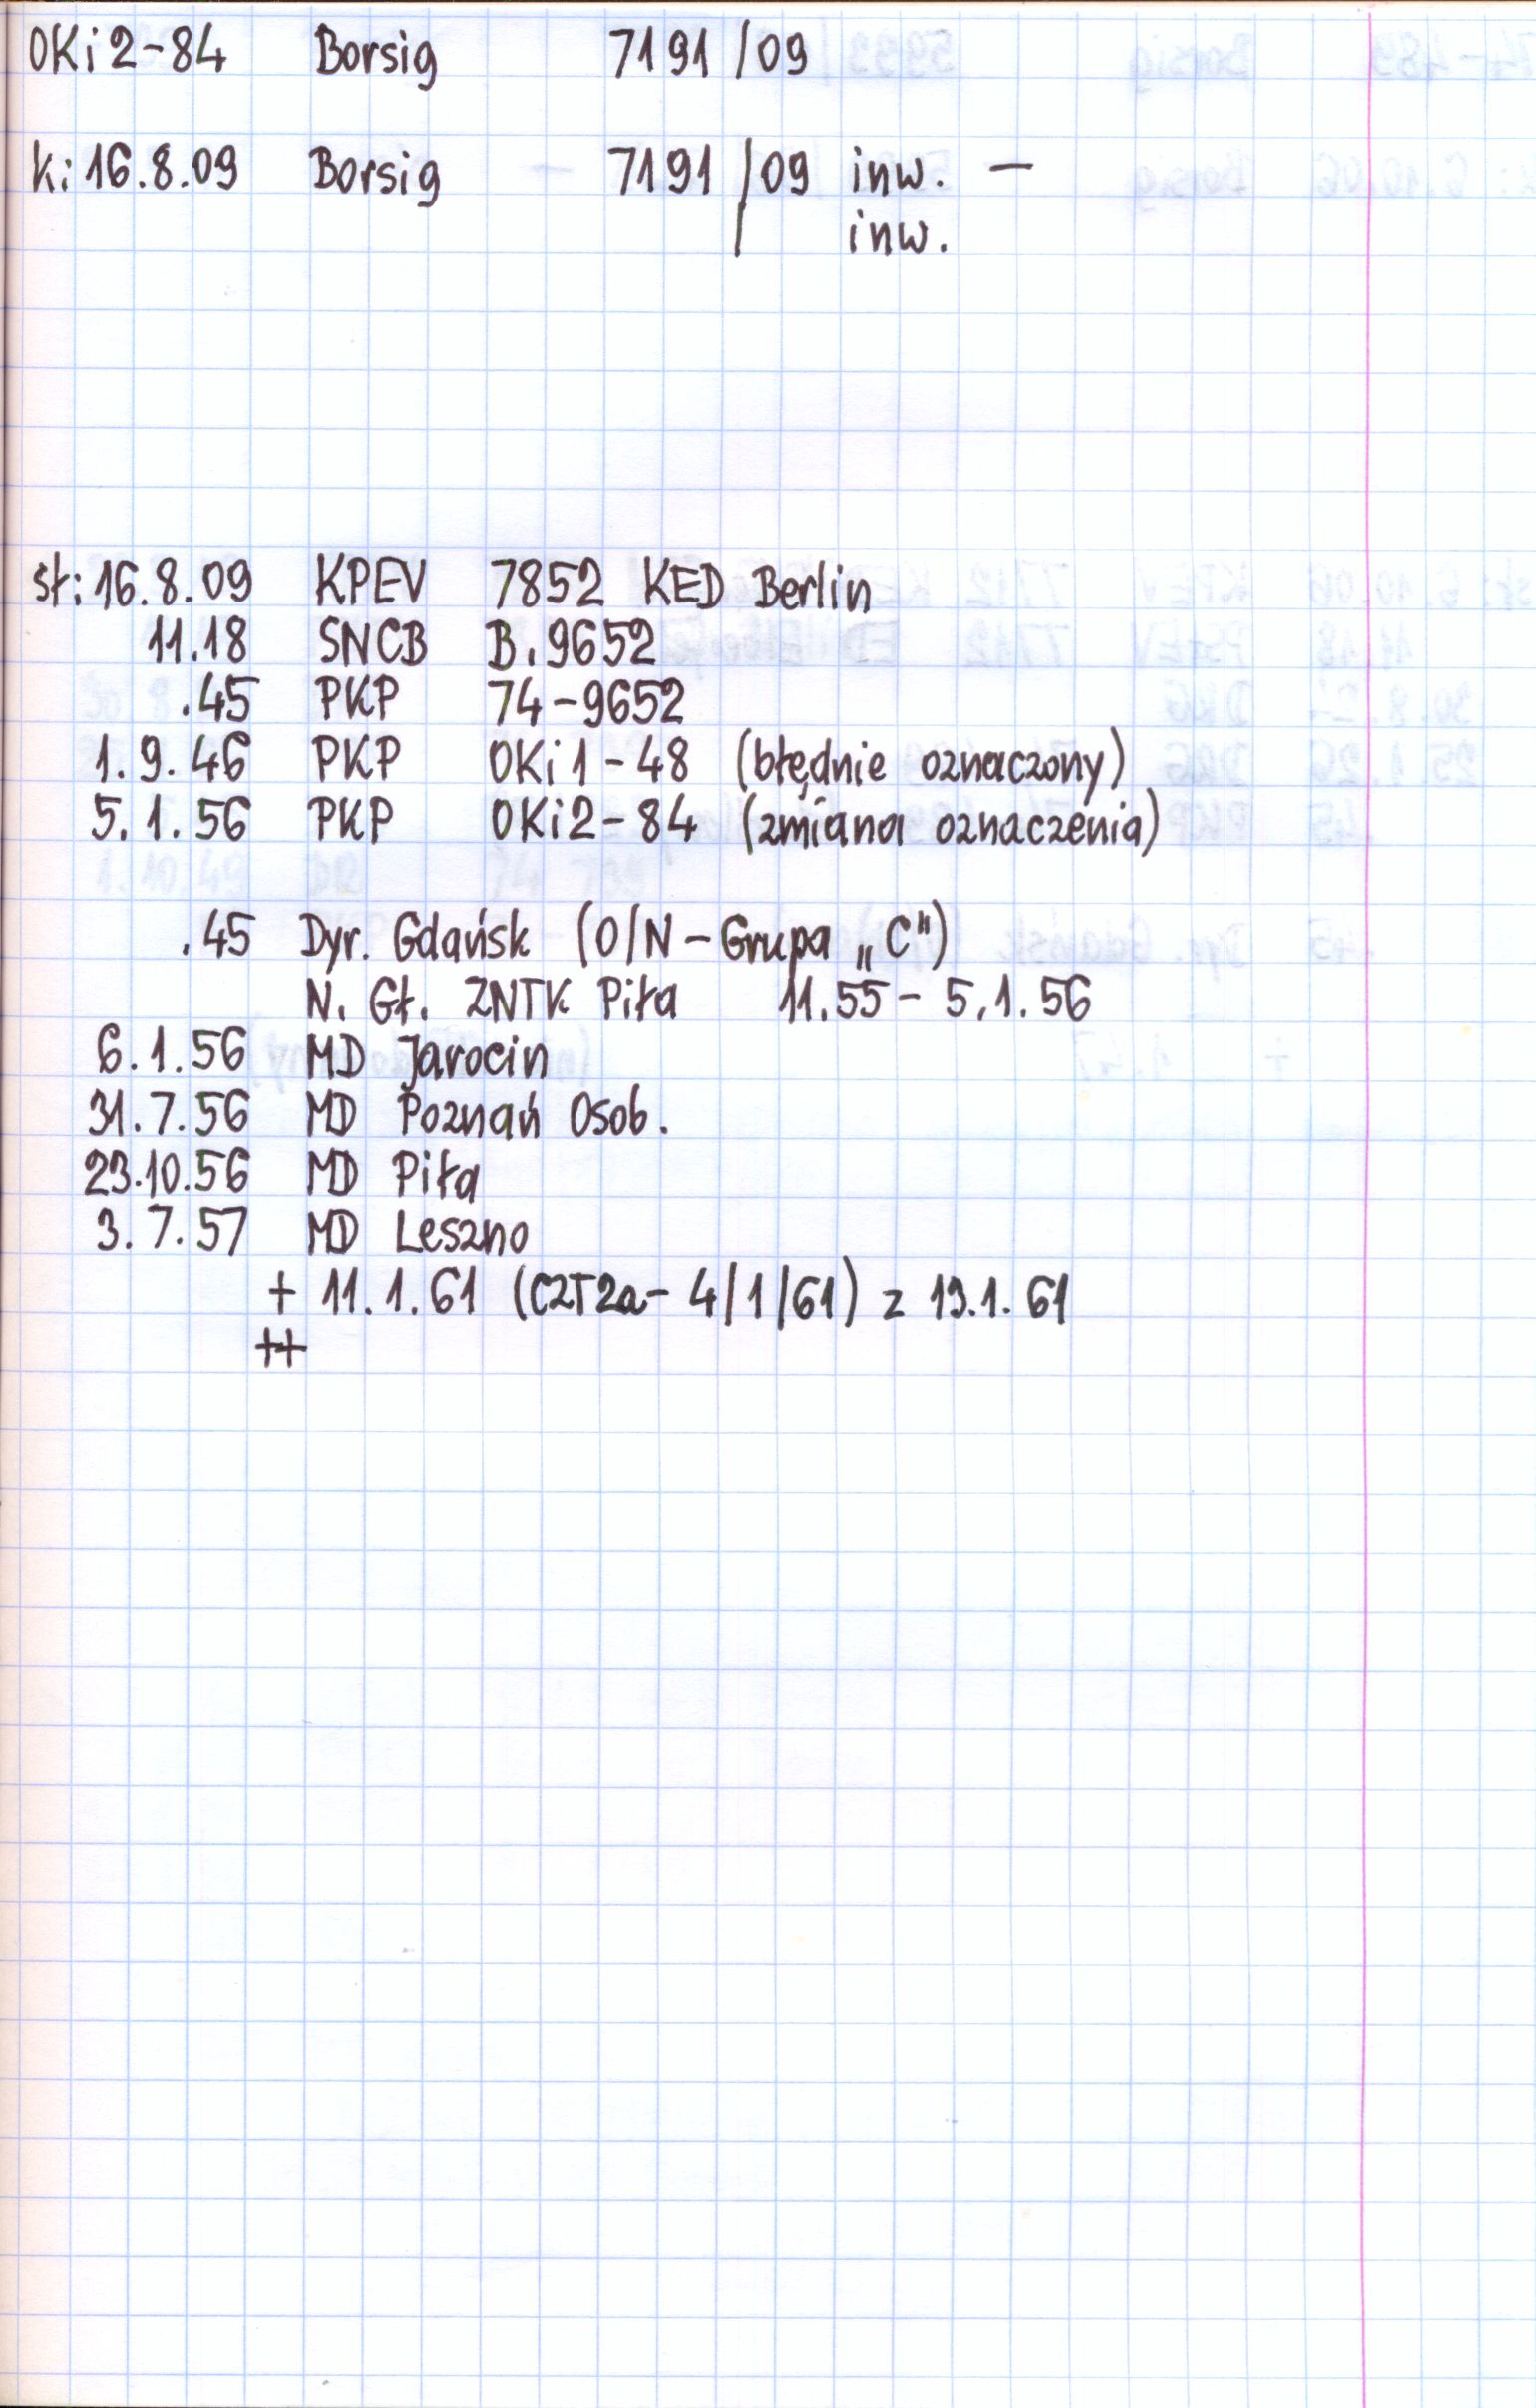 OKi2-84 Borsig 7191/09
k: 16.8.09 Borsig 7191/09 inw. –
inw.
st: 16.8.09 KPEV 7852 KED Berlin
11.18 SNCB B.9652
.45 PKP 74-9652
1.9.46 PKP OKi1-48 (błędnie oznaczony)
5.1.56 PKP OKi2-84 (zmiana oznaczenia)
.45 Dyr. Gdańsk (O/N – Grupa „C")
N. Gł. ZNTK Piła 11.55 – 5.1.56
6.1.56 MD Jarocin
31.7.56 MD Poznań Osob.
23.10.56 MD Piła
3.7.57 MD Leszno
+ 11.1.61 (CZT2a- 4/1/61) z 19.1.61
++